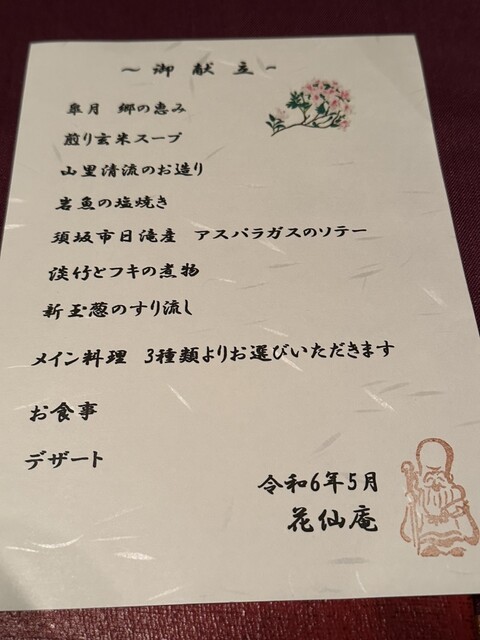 ～御献立～
皐月 郷の恵み
煎り玄米スープ
山里清流のお造り
岩魚の塩焼き
須坂市日滝産 アスパラガスのソテー
淡竹とフキの煮物
新玉葱のすり流し
メイン料理 3種類よりお選びいただきます
お食事
デザート
令和6年5月
花仙庵